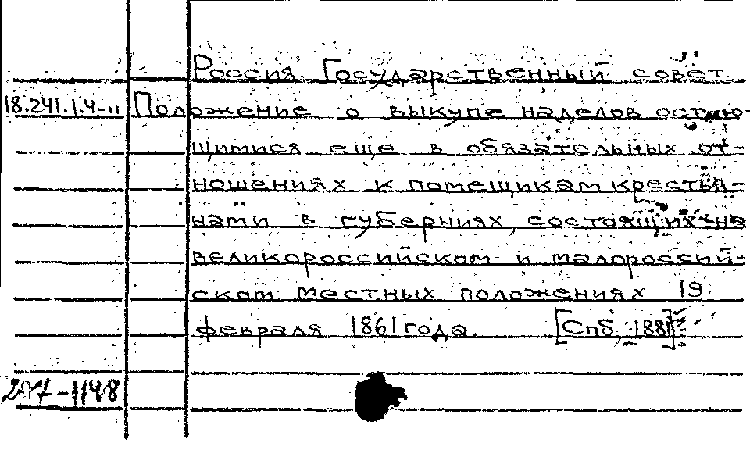 Россия Государственный совет
18.241.1.4-11 Положение о выкупе наделов остаю-
щимися еще в обязательных от-
ношениях к помещикам крестья-
нами в губерниях, состоящих на
великороссийском и малороссий-
ском местных положениях 19
февраля 1861 года. [Спб, 1881]